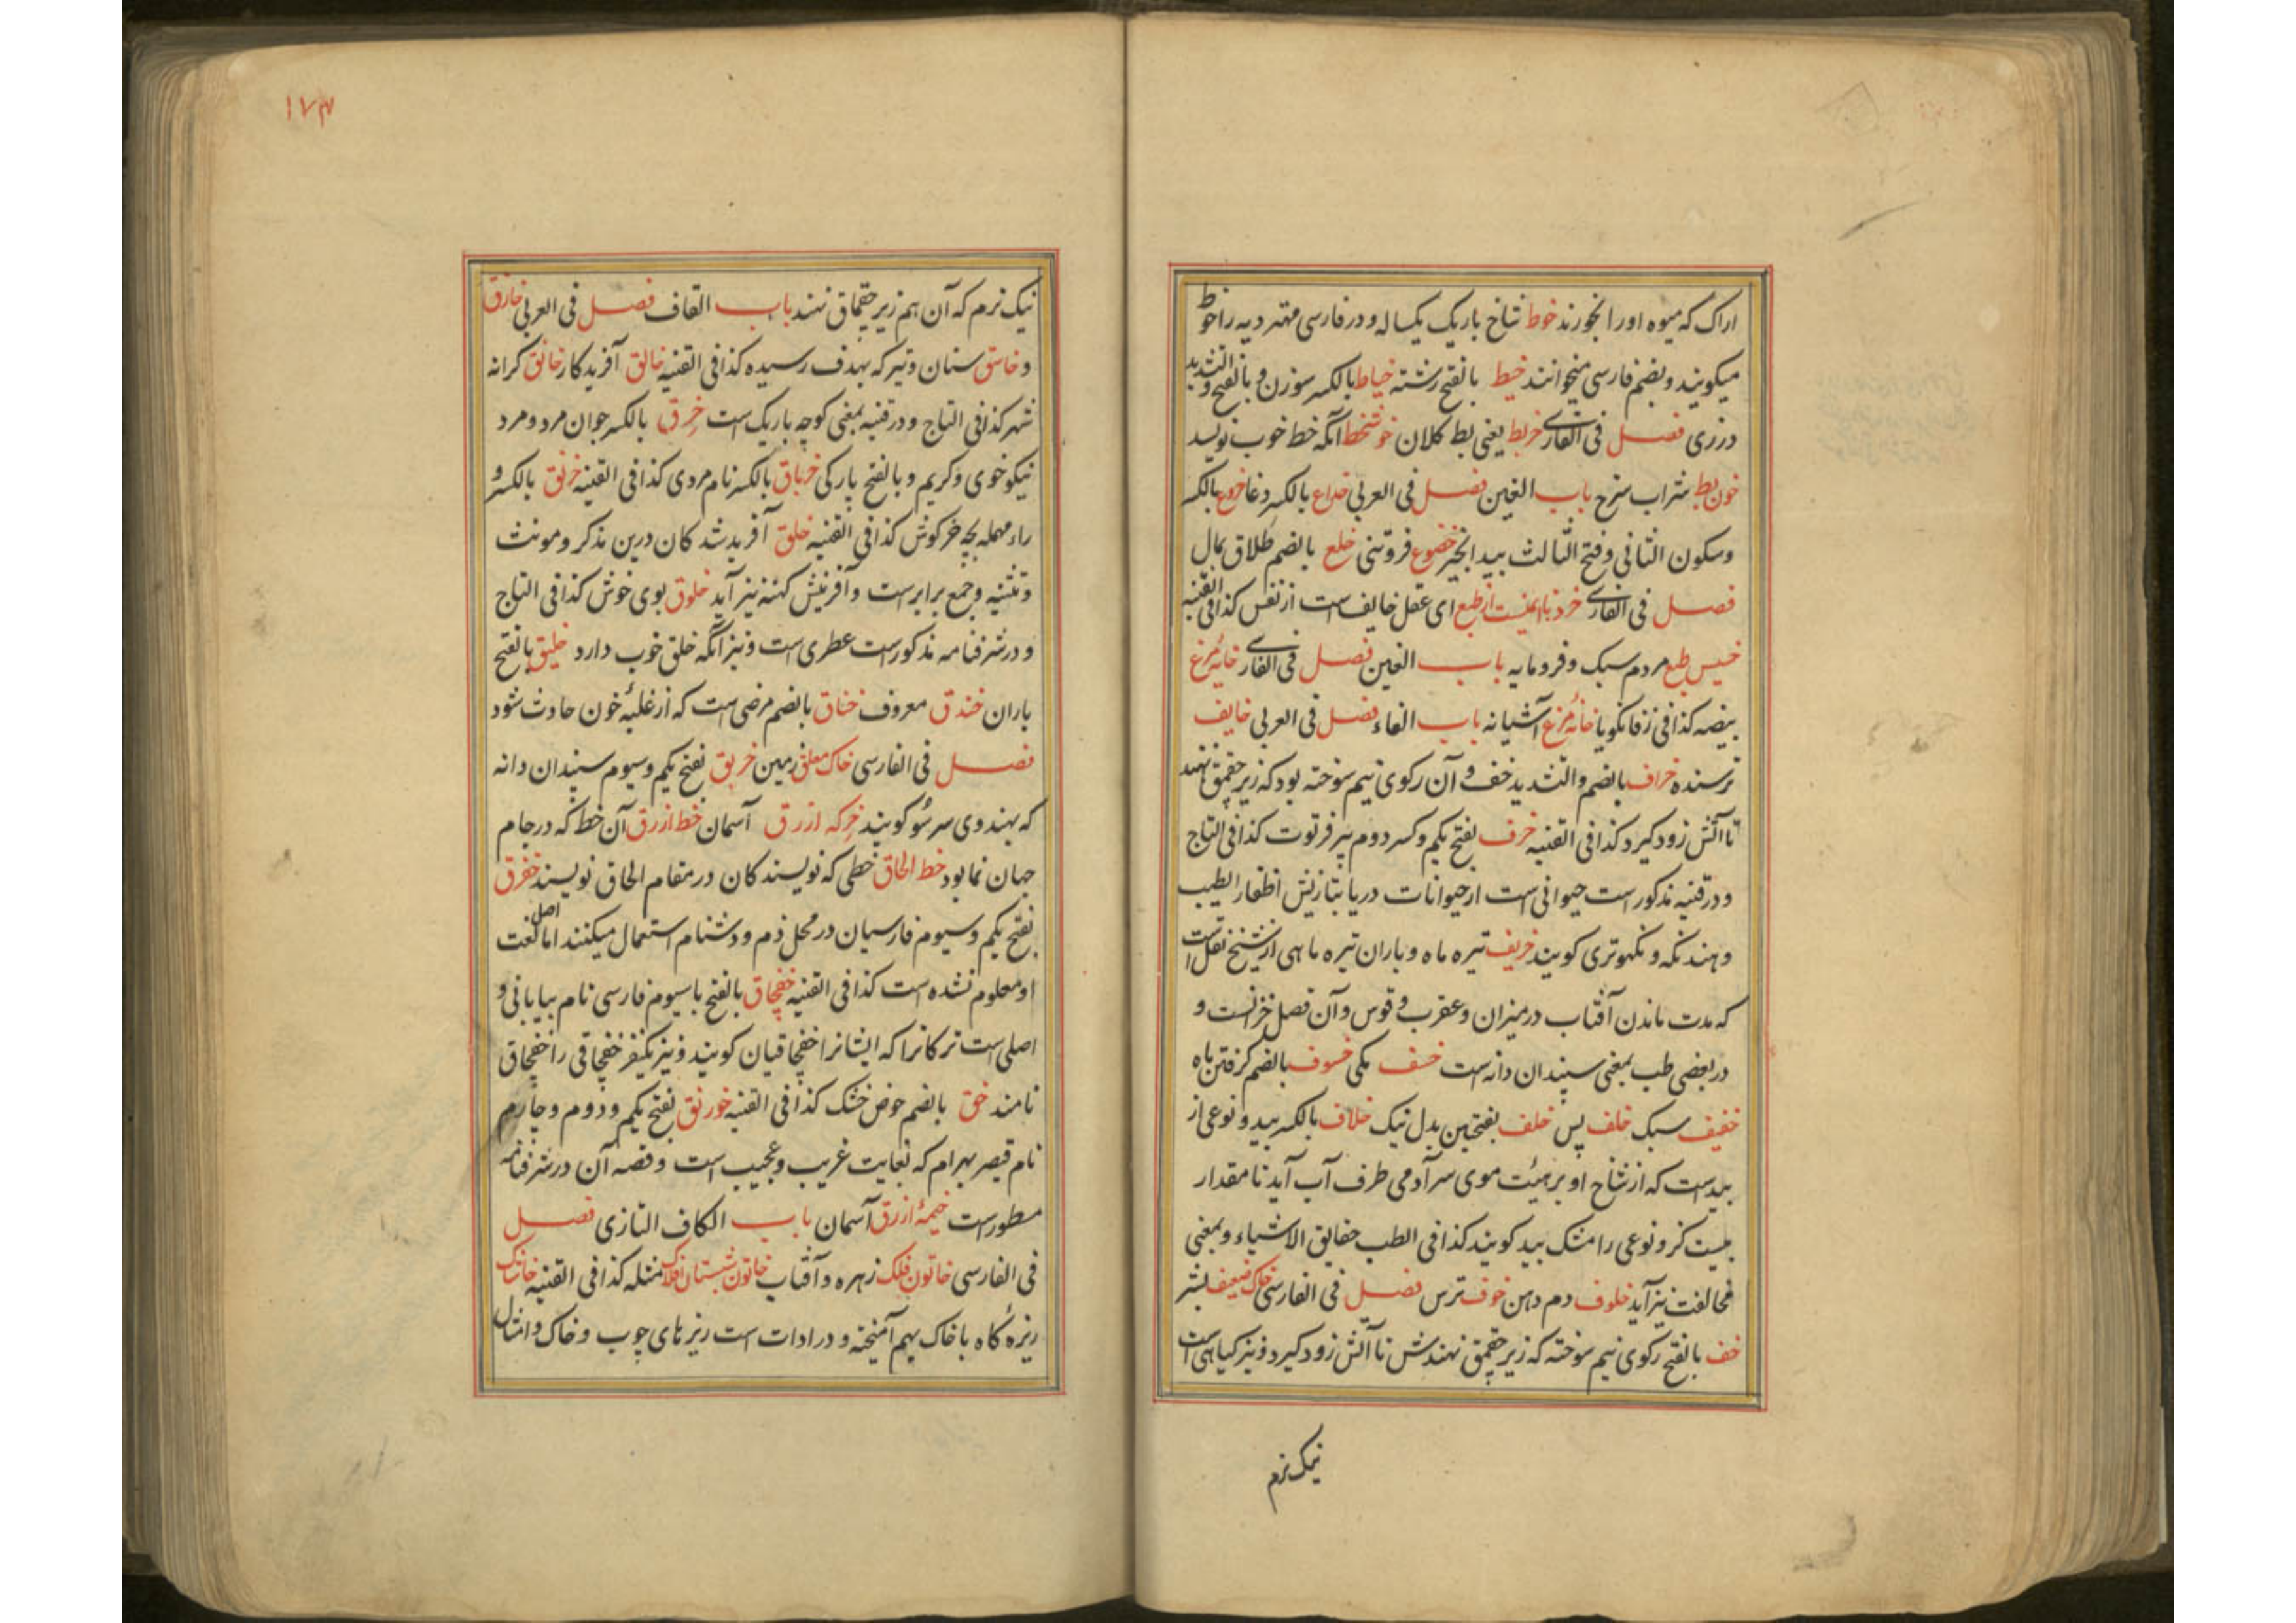 اراک که میوه اورا بخورند خوط شاخ باریک یکساله و در فارسی مهتر دیه را خوط
میگویند و بضم فارسی میخوانند خیط بالفتح رشته خیاط بالکسر سوزن و بالفتح و التشدید
درزی فصل فی الفارسی خربط یعنی بط کلان خوشخط آنکه خط خوب نویسد
خون بط شراب سرخ باب العین فصل فی العربی خداع بالکسر دغا خروع بالکسر
وسکون الثانی و فتح الثالث بید انجیر خضوع فروتنی خلع بالضم طلاق بمال
فصل فی الفارسی از طبع ای عقل خایف است از نفس کذا فی القنیه
خسیس طبع مردم سبک و فرومایه باب الغین فصل فی الفارسی خایه مرغ
بیضه کذا فی زفانگویا خانه مرغ آشیانه باب الفاء فصل فی العربی خایف
ترسنده خراف بالضم والتشدید خف و آن رکوی نیم سوخته بود که زیر چقمق نهند
تا آتش زود گیرد کذا فی القنیه خرف بفتح یکم و کسر دوم پیر فرتوت کذا فی التاج
و در قنیه مذکورست حیوانی است از حیوانات دریا بتازیش اظفار الطیب
و هند نکه و نکهوتری گویند خریف تیره ماه و باران تیره ماهی از شیخ نقل است
که مدت ماندن آفتاب در میزان و عقرب و قوس و آن فصل خزانست و
در بعضی طب بمعنی سپندان دانه است خسف یکی خسوف بالضم گرفتن ماه
خفیف سبک خلف پس خلف بفتحتین بدل نیک خلاف بالکسر بید و نوعی از
بیدست که از شاخ او بر هیئت موی سر آدمی طرف آب آید تا مقدار
بیست گز و نوعی را مشک بید گویند کذا فی الطب حقایق الاشیاء و بمعنی
مخالفت نیز آید خلوف دم دهن خوف ترس فصل فی الفارسی خاک ضعیف بشر
خف بالفتح رکوی نیم سوخته که زیر چقمق نهندش تا آتش زود گیرد و نیز گیاهی است
نیک نرم
۱۷۴
نیک نرم که آن هم زیر چقماق نهند باب القاف فصل فی العربی خازق
و خاسق سنان و تیر که بهدف رسیده کذا فی القنیه خالق آفریدکار خانق کرانه
شهر کذا فی التاج و در قنیه بمعنی کوچه باریک است خرق بالکسر جوان مرد و مرد
نیکو خوی و کریم و بالفتح پارکی خرباق بالکسر نام مردی کذا فی القنیه خرنق بالکسر و
راء مهمله بچه خرگوش کذا فی القنیه خلق آفرید شد کان درین مذکر و مونث
و تثنیه و جمع برابرست و آفرینش کهنه نیز آید خلوق بوی خوش کذا فی التاج
و در شرفنامه مذکورست عطری است و نیز آنکه خلق خوب دارد خلیق بالفتح
باران خندق معروف خناق بالضم مرضی است که از غلبه خون حادث شود
فصل فی الفارسی خاک معلق زمین خربق بفتح یکم و سیوم سپندان دانه
که بهندوی سرشو گویند خرکه ازرق آسمان خط ازرق آن خط که در جام
جهان نما بود خط الحاق خطی که نویسندکان در مقام الحاق نویسند خفرق
بفتح یکم و سیوم فارسیان در محل ذم و دشنام استعمال میکنند اما اصل لغت
او معلوم نشده است کذا فی القنیه خفچاق بالفتح با سیوم فارسی نام بیابانی و
اصلی است ترکانرا که ایشانرا خفچاقیان گویند و نیز یکنفر خفچاقی را خفچاق
نامند خق بالضم حوض خشک کذا فی القنیه خورنق بفتح یکم و دوم و چارم
نام قیصر بهرام که بغایت غریب و عجیب است و قصه آن در شرفنامه
مسطورست خیمه ازرق آسمان باب الکاف التازی فصل
فی الفارسی خاتون فلک زهره و آفتاب خاتون شبستان افلاک مثله کذا فی القنیه خاشاک
ریزه کاه با خاک بهم آمیخته و در ادات است ریزهای چوب و خاک و امثال